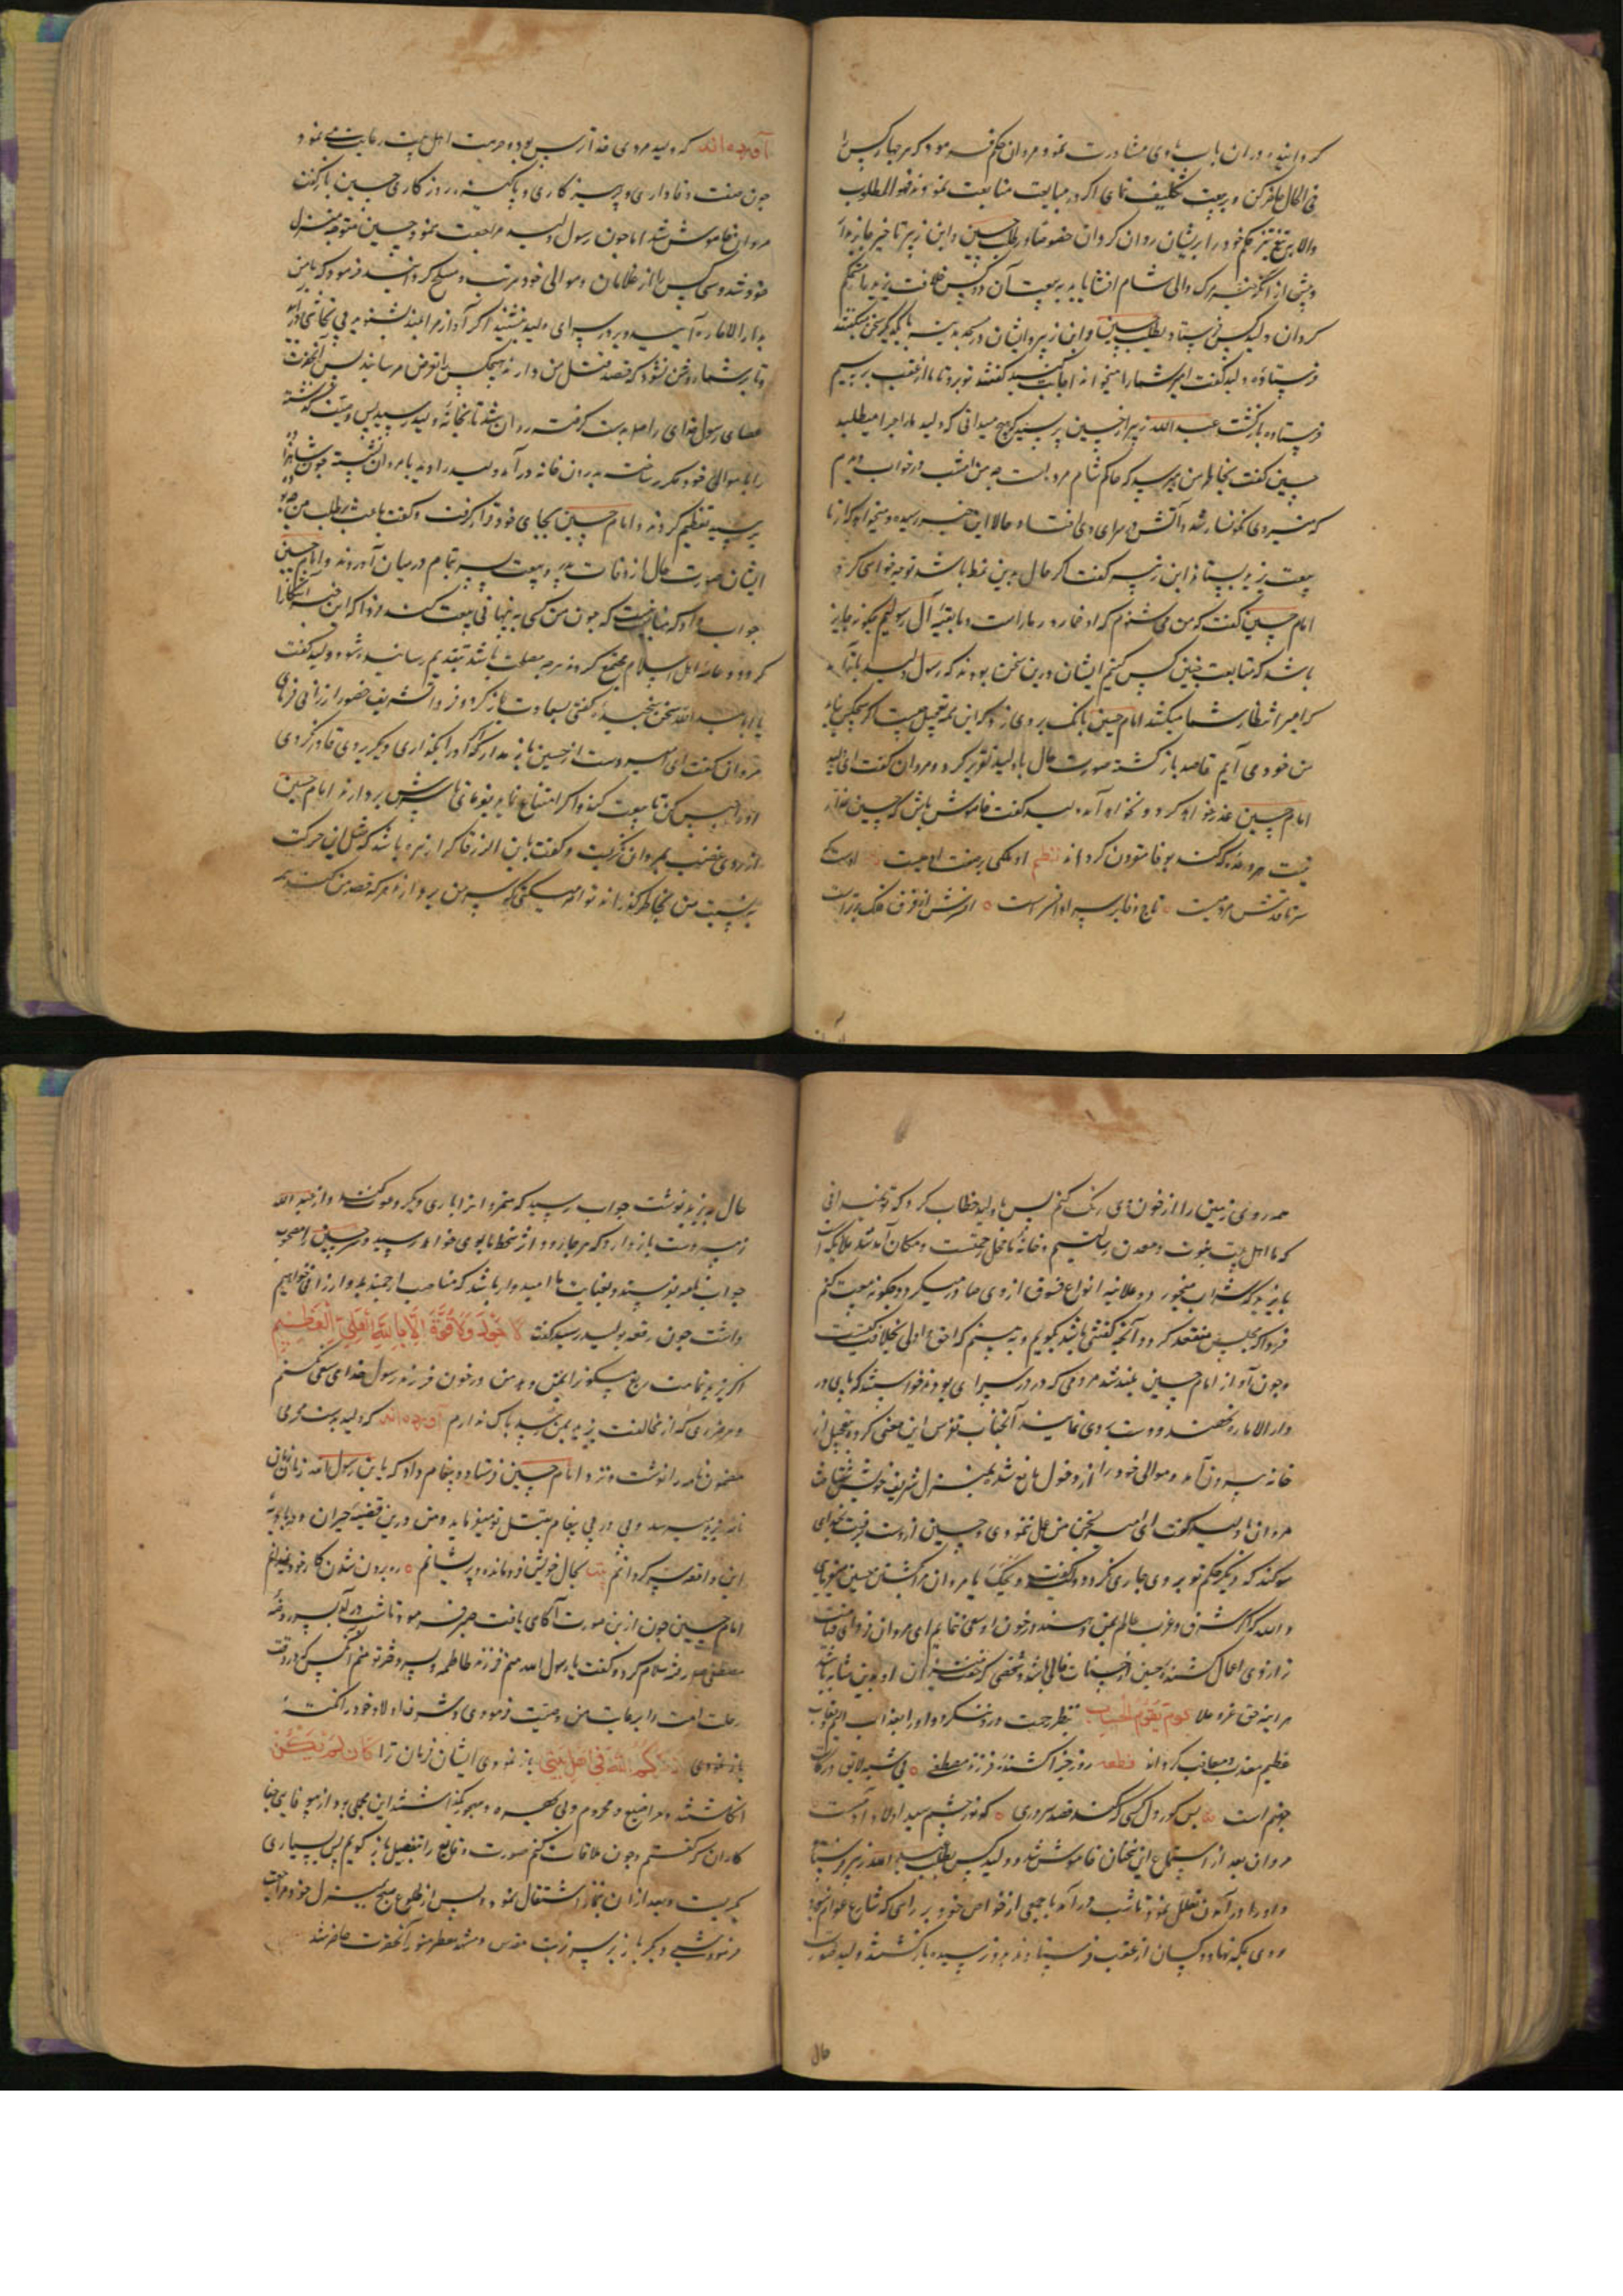 گردانید و در آن باب با وی مشاورت نمود مروان حکم فرمود که هر چهار کس را
فی الحال حاضر کن و بر بیعت تکلیف نمای اگر در مبایعت متابعت نمودند فهو المطلوب
والا به تیغ تیز حکم خود را بر ایشان روان گردان خصوصا در طلب حسین و ابن زبیر تاخیر جایز مدار
و پیش از آنکه خبر مرگ والی شام افشا یابد به بیعت آن دو کس خلافت یزید را مستحکم
گردان ولید کس فرستاد بطلب حسین و ابن زبیر و ایشان در مسجد مدینه با یکدیگر سخن میگفتند
فرستاده ولید گفت امیر شما را میخواند اجابت کنید گفتند تو برو تا ما از عقب برسیم
فرستاده بازگشت عبد الله زبیر از حسین پرسید که هیچ میدانی که ولید ما را چرا میطلبد
حسین گفت بخاطر من میرسد که حاکم شام مرده است چه من امشب در خواب دیدم
که منبر وی نگونسار شد و آتش در سرای وی افتاد و حالا این خبر رسیده و میخواهد که از ما
بیعت یزید بستاند ابن زبیر گفت اگر حال بدین نمط باشد تو چه خواهی کرد
امام حسین گفت که من می شنوم که او خمار و زمار است و ما بقیه آل رسولیم چگونه جایز
باشد که متابعت چنین کس کنیم ایشان درین سخن بودند که رسول ولید باز آمد
که امیر انتظار شما میکشد امام حسین بانگ بر وی زد که این همه تعجیل چیست اگر هیچکس نیاید
من خود می آیم قاصد بازگشته صورت حال با ولید تقریر کرد و مروان گفت ای ولید
امام حسین غدر خواهد کرد و نخواهد آمد ولید گفت خاموش باش که حسین غدار
نیست هر وعده که کند بوفا مقرون گرداند نظم او ملکی بر صفت آدمیست
سر تا قدمش مردمیست تاج وفا بر سر او افسر است افسرش از فرق فلک برتر است
آورده اند که ولید مردی خدا ترس بود و حرمت اهل بیت رعایت می نمود
چون صفت وفاداری و پرهیزکاری و پاکیزه روزگاری حسین باز گفت
مروان خاموش شد اما چون رسول ولید مراجعت نمود حسین متوجه منزل
خود شد و سی کس را از غلامان و موالی خود مرتب و مسلح گردانید فرمود که با من
بدار الاماره آیید و بر در سرای ولید بنشینید اگر آواز مرا بلند شنوید بی تحاشی درآیید
و تا بر شما روشن نشود که قصد قتل من دارند هیچکس را تعرض مرسانید پس آنحضرت
عصای رسول خدای را صلعم بدست گرفت روان شد تا بخانه ولید رسید پس وصیت که گذشته
را با موالی خود مکرر ساخت بدرون خانه در آمد ولید را دید با مروان نشسته چون شاهزاده
برسید تعظیم کردند و امام حسین بجای خود قرار گرفت و گفت باعث بر طلب من چه بود
ایشان صورت حال از وفات پدر و بیعت پسر بتمام در میان آوردند و امام حسین
جواب داد که مناسب نیست که چون من کسی به پنهانی بیعت کند فردا که این خبر آشکارا
گردد و عامه اهل اسلام مجتمع گردند هر چه مصلحت باشد بتقدیم رسانیده شود ولید گفت
یا ابا عبد الله سخن سنجیده گفتی بسعادت باز گرد و فردا تشریف حضور ارزانی فرمای
مروان گفت ای امیر دست از حسین باز مدار که اگر او را بگذاری دیگر بر وی قادر نگردی
او را حبس کن تا بیعت کند و اگر امتناع نماید بفرمای تا سرش بردارند امام حسین
از روی غضب بمروان نگریست و گفت یا ابن الزرقا کرا زهره باشد که مثل این حرکت
به نسبت من بخاطر گذراند تو امر میکنی که سر من بردارند هر که قصد من کند
همه روی زمین را از خون وی رنگ کنم پس با ولید خطاب کرد که تو نمیدانی
که ما اهل بیت نبوت و معدن رسالتیم و خانه ما محل رحمتست و مکان آمد شد ملایکه است
با یزید که شراب میخورد و علانیه انواع فسوق از وی صادر میگردد چگونه بیعت کنم
فردا که مجلس منعقد گردد آنچه گفتنی باشد بگویم و به بینم که احق و اولی بخلافت کیست
و چون آواز امام حسین بلند شد مردمی که در در سرای بودند خواستند که پای در
دار الاماره نهند و دست بردی نمایند آنجناب تفرس این معنی کرده بتعجیل از
خانه بیرون آمد و موالی خود را از دخول مانع شد بمنزل شریف خویش شتافت
مروان با ولید گفت ای امیر بسخن من عمل ننمودی و حسین از دست برفت بخدای
سوگند که دیگر حکم تو بر وی جاری نگردد ولید گفت ویحک یا مروان مرا بکشتن حسین میفرمایی
والله که اگر شرق و غرب عالم بمن دهند در خون او سعی ننمایم ای مروان فردای قیامت
ترازوی اعمال کشنده حسین از حسنات خالی باشد و شخصی که میزان او بدین مثابه باشد
هر آینه حق عز و علا یوم یقوم الحساب بنظر رحمت در وی ننگرد و او را بعذاب الیم و عقاب
عظیم معذب و معاقب گرداند قطعه روز جزا کشنده فرزند مصطفی بی شبه لایق درکات
جهنم است بس کور دل کسی که کند قصد سروری کو نور چشم سید اولاد آدمست
مروان بعد از استماع این سخنان خاموش شد و ولید کس بطلب عبد الله زبیر فرستاد
و او در آمدن تعلل نمود تا شب در آمد با جمعی از خواص خود بر راهی که شارع عوام نبود
روی بمکه نهاد و کسان از عقب فرستادند بدو نرسیده بازگشتند ولید صورت
حال
حال به یزید نوشت جواب رسید که متمردانرا باری دیگر دعوت کند و از عبد الله
زبیر دست باز دارد که هر جا رود از سخط ما بوی خواهد رسید و سر حسین را مصحوب
جواب نامه بفرستد و بعنایات ما امیدوار باشد که مناصب ارجمند بدو ارزانی خواهیم
داشت چون رقعه بولید رسید گفت لا حول ولا قوة الا بالله العلی العظیم
اگر یزید تمامت ربع مسکون را بمن دهد من در خون فرزند رسول خدای سعی نکنم
و هر ضرری که از مخالفت یزید بمن رسد باک ندارم آورده اند که ولید بدست محرمی
مضمون نامه را نوشت و نزد امام حسین فرستاد و پیغام داد که یا ابن رسول الله زمان زمان
نامه یزید میرسد و پی در پی پیغام بقتل تو میفرماید و من درین قضیه حیران و در بادیه
این واقعه سرگردانم بیت بحال خویش فرو مانده و پریشانم ره برون شدن کار خود نمیدانم
امام حسین چون ازین صورت آگاهی یافت صبر فرمود تا شب در آمد بسر روضه
مصطفی صلعم رفته سلام کرد و گفت یا رسول الله منم فرزند فاطمه و پسر دختر تو منم آنکس که در وقت
رحلت امت را برعایت من وصیت فرمودی و شرف اولاد خود را گفته
باز نمودی اذکرکم الله فی اهل بیتی باز نمودی ایشان فرمان ترا کان لم یکن
انگاشتند و مرا ضایع و محروم و بی بهره و مهجور گذاشتند این مجملی بود از بیوفایی جفا
کاران که گفتم و چون ملاقات کنم صورت وقایع را بتفصیل باز گویم پس بسیاری
بگریست و بعد از آن بنماز اشتغال نمود و پس از طلوع صبح بمنزل خود مراجعت
فرمود شبی دیگر باز بر سر تربت مقدس و مشهد معطر منور آنحضرت حاضر شد